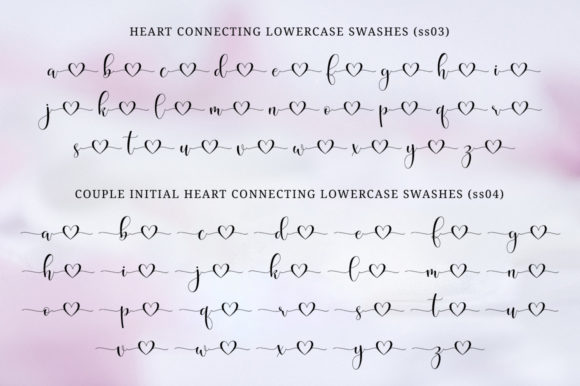 HEART CONNECTING LOWERCASE SWASHES (ss03)
a b c d e f g h i
j k l m n o p q r
s t u v w x y z
COUPLE INITIAL HEART CONNECTING LOWERCASE SWASHES (ss04)
a b c d e f g
h i j k l m n
o p q r s t u
v w x y z